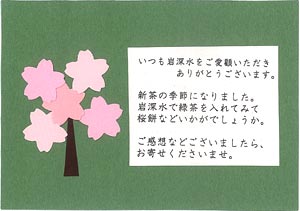 いつも岩深水をご愛顧いただき
ありがとうございます。
新茶の季節になりました。
岩深水で緑茶を入れてみて
桜餅などいかがでしょうか。
ご感想などございましたら、
お寄せくださいませ。